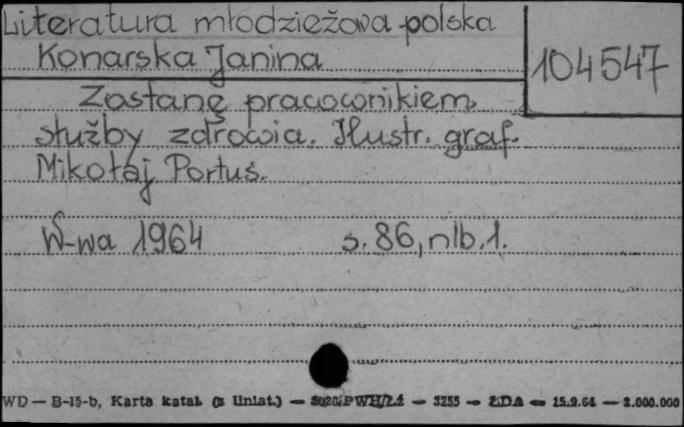 Literatura młodzieżowa polska
Konarska Janina
104547
Zostanę pracownikiem
służby zdrowia. Ilustr. graf.
Mikołaj Portus.
W-wa 1964 s. 86, nlb. 1.
WD — B-15-b, Karta katal. (z liniat.) — PWH/Łź — 3255 — ŁDA — 15.9.64 — 2.000.000